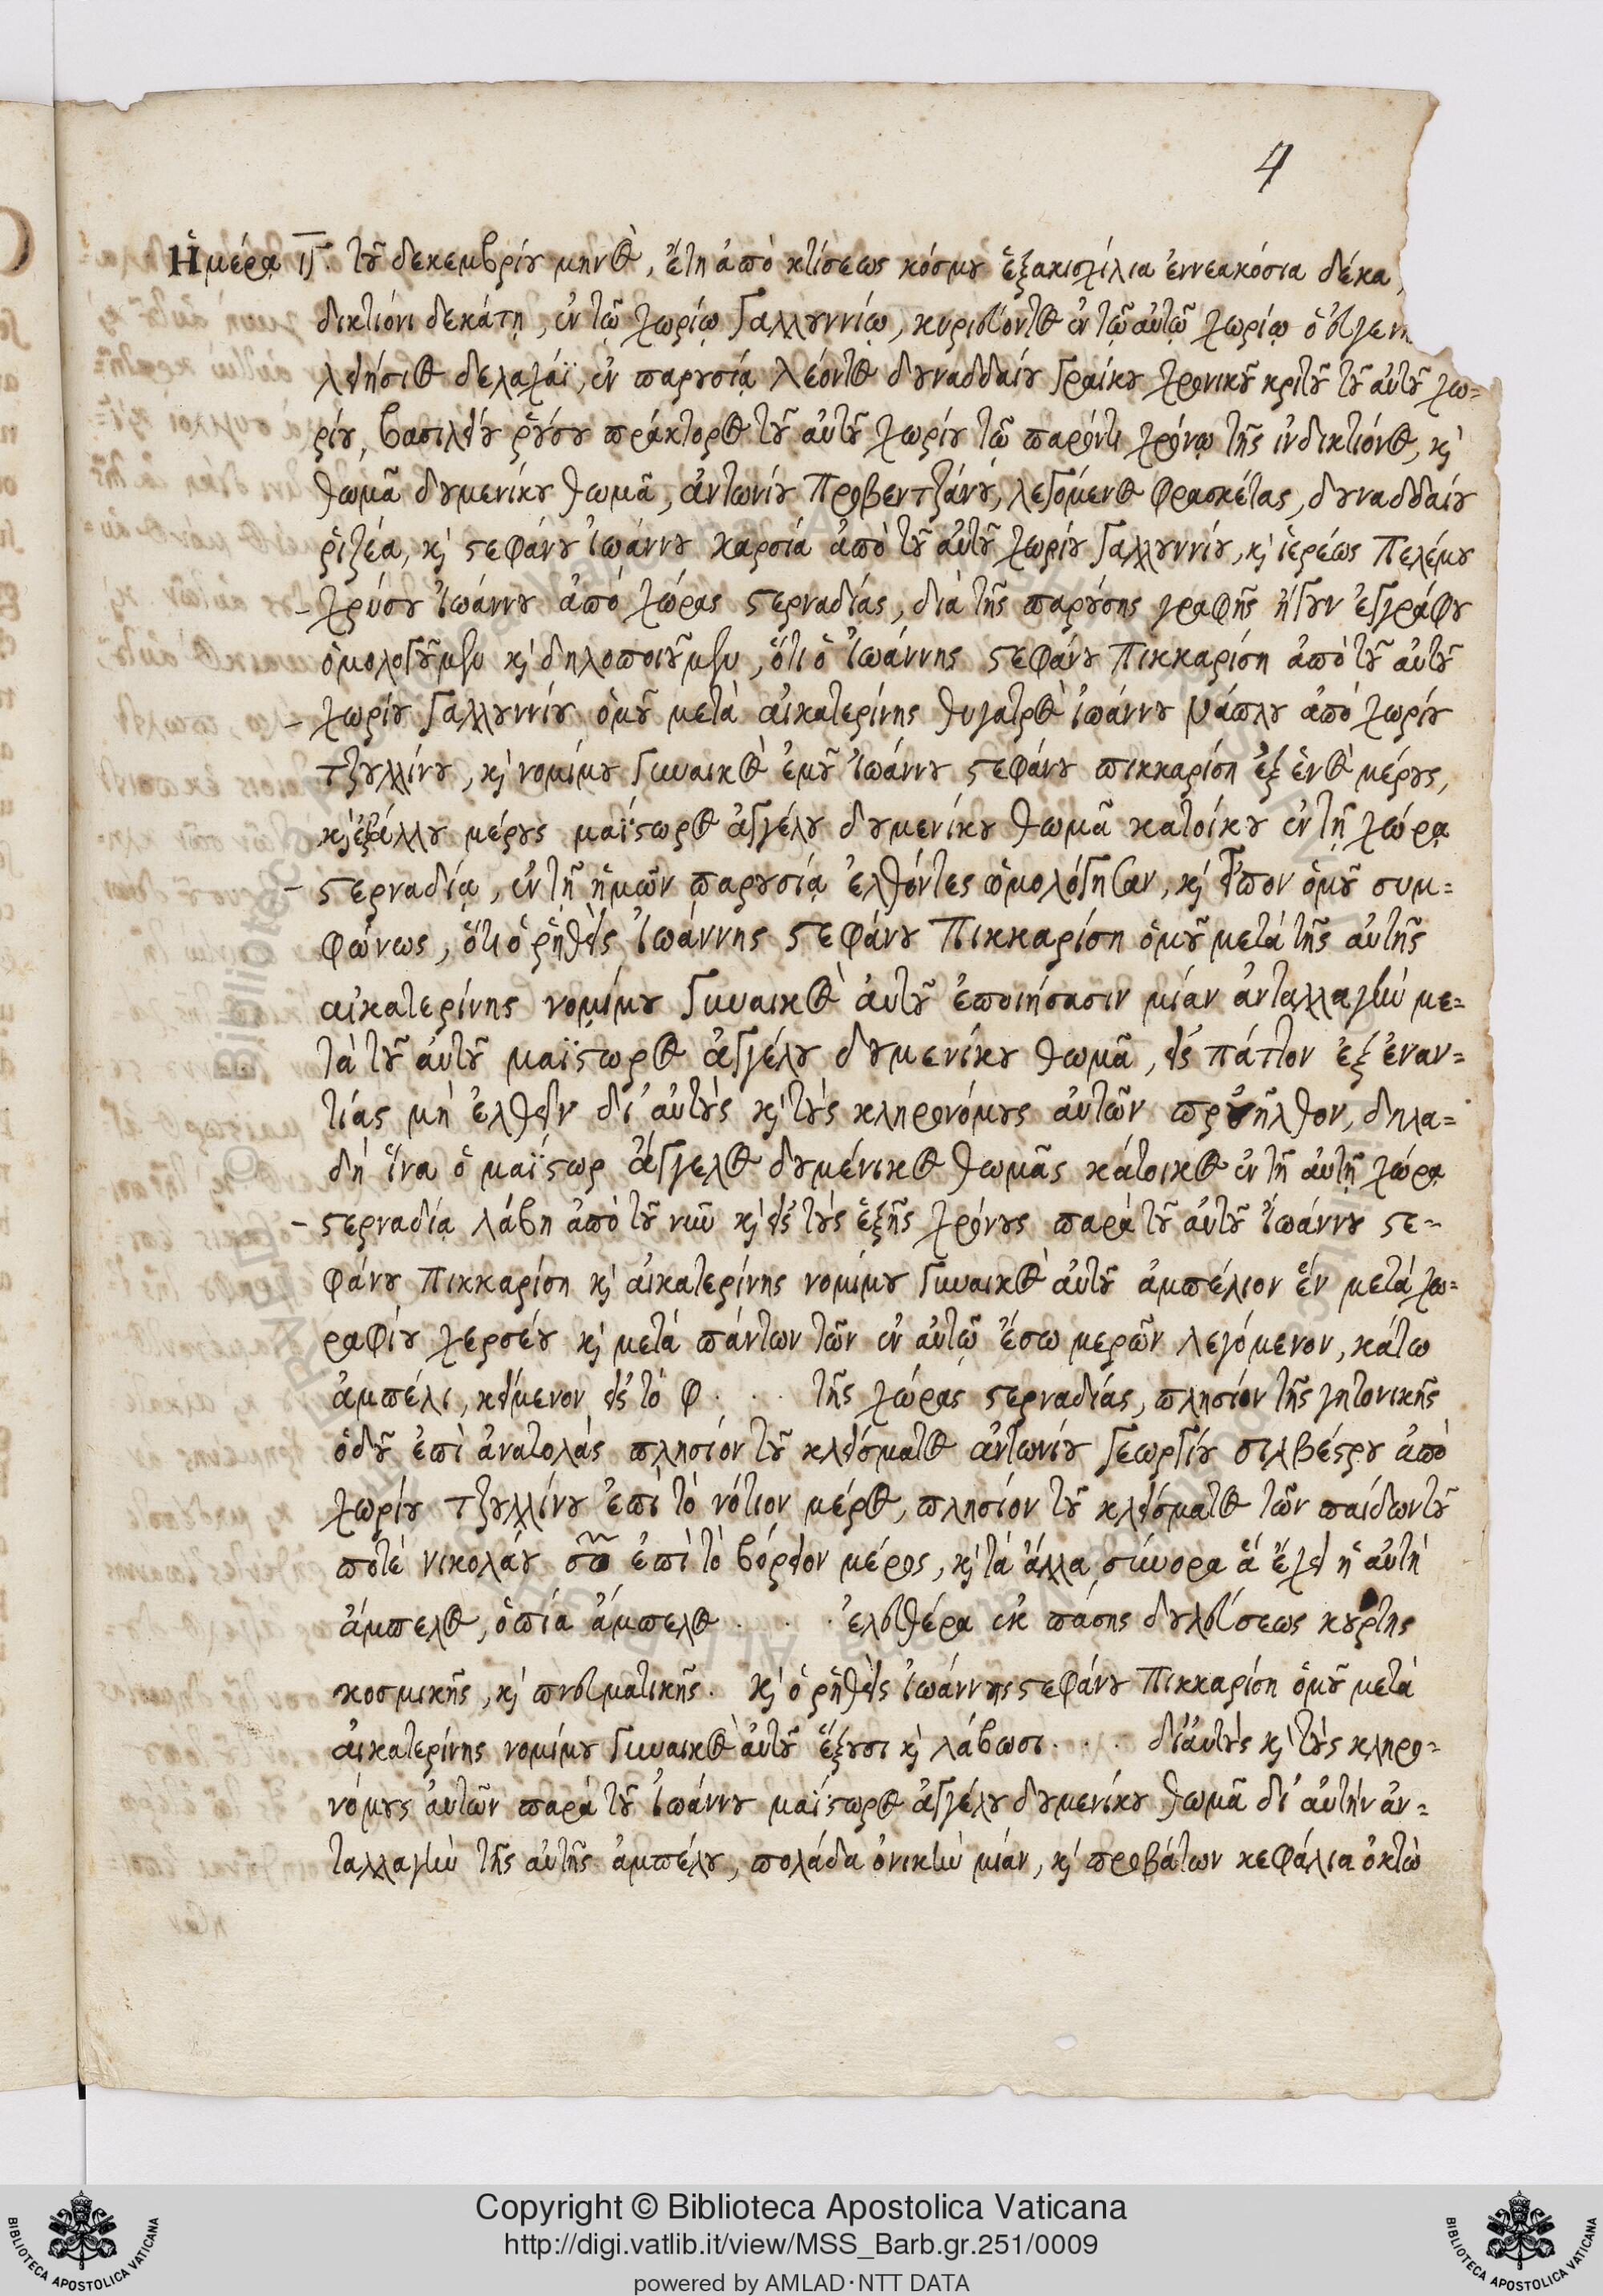 4
Ἡμέρᾳ ιγ. τοῦ δεκεμβρίου μηνὸς, ἔτη ἀπὸ κτίσεως κόσμου ἑξακισχίλια ἐννεακόσια δέκα,
δικτιόνι δεκάτῃ, ἐν τῷ χωρίῳ Γαλλουννίῳ, κυριεύοντος ἐν τῷ αὐτῷ χωρίῳ ὁ εὐγεν
λφήσιος δελαχάϊ, ἐν παρουσίᾳ Λέοντος δουναδδαίου Γραίκου χρονικοῦ κριτοῦ τοῦ αὐτοῦ χω=
ρίου, βασιλείου ῥούσου πράκτορος τοῦ αὐτοῦ χωρίου τῷ παρόντι χρόνῳ τῆς ἰνδικτιόνος, καὶ
θωμᾶ δουμενίκου θωμᾶ, ἀντωνίου Προβεντζάνου, λεγόμενος Φρασκέτας, δουναδδαίου
ῥιζέα, καὶ στεφάνου ἰωάννου καρσία ἀπὸ τοῦ αὐτοῦ χωρίου Γαλλουννίου, καὶ ἱερέως Πελέμου
– χρύσου ἰωάννου ἀπὸ χώρας στερναδίας, διὰ τῆς παρούσης γραφῆς ἤγουν ἐγγράφου
ὁμολογοῦμεν καὶ δηλοποιοῦμεν, ὅτι ὁ Ἰωάννης στεφάνου Πικκαρίση ἀπὸ τοῦ αὐτοῦ
– χωρίου Γαλλουννίου ὁμοῦ μετὰ αἰκατερίνης θυγατρὸς ἰωάννου νάπλου ἀπὸ χωρίου
τζουλλίνου, καὶ νομίμου Γυναικὸς ἐμοῦ Ἰωάννου στεφάνου πικκαρίση ἐξ ἑνὸς μέρους,
καὶ ἐξ ἄλλου μέρους μαΐστωρος ἀγγέλου δουμενίκου θωμᾶ κατοίκου ἐν τῇ χώρᾳ
– στερναδίᾳ, ἐν τῇ ἡμῶν παρουσίᾳ ἐλθόντες ὡμολόγησαν, καὶ εἶπον ὁμοῦ συμ=
φώνως, ὅτι ὁ ῥηθεὶς Ἰωάννης στεφάνου Πικκαρίση ὁμοῦ μετὰ τῆς αὐτῆς
αἰκατερίνης νομίμου Γυναικὸς αὐτοῦ ἐποιήσασιν μίαν ἀνταλλαγὴν με=
τὰ τοῦ αὐτοῦ μαΐστωρος ἀγγέλου δουμενίκου θωμᾶ, εἰς πάττον ἐξ ἐναν=
τίας μὴ ἐλθεῖν δι' αὐτοὺς καὶ τοὺς κληρονόμους αὐτῶν προῆλθον, δηλα=
δὴ ἵνα ὁ μαΐστωρ Ἄγγελος δουμένικος θωμᾶς κάτοικος ἐν τῇ αὐτῇ χώρᾳ
– στερναδίᾳ λάβη ἀπὸ τοῦ νῦν καὶ εἰς τοὺς ἑξῆς χρόνους παρὰ τοῦ αὐτοῦ Ἰωάννου στε=
φάνου Πικκαρίση καὶ αἰκατερίνης νομίμου Γυναικὸς αὐτοῦ ἀμπέλιον ἓν μετὰ χω=
ραφίου χερσέου καὶ μετὰ πάντων τῶν ἐν αὐτῷ ἔσω μερῶν λεγόμενον, κάτω
ἀμπέλι, κείμενον εἰς τὸ φ . . . τῆς χώρας στερναδίας, πλησίον τῆς γητονικῆς
ὁδοῦ ἐπὶ ἀνατολάς πλησίον τοῦ κλείσματος ἀντωνίου Γεωργίου σιλβέστρου ἀπὸ
χωρίου τζουλλίνου ἐπὶ τὸ νότιον μέρος, πλησίον τοῦ κλείσματος τῶν παίδων τοῦ
ποτὲ νικολάου ἐπὶ τὸ βόρειον μέρος, καὶ τὰ ἄλλα σύνορα ἃ ἔχει ἡ αὐτὴ
ἄμπελος, ὁπία ἄμπελος . . . ἐλευθέρα ἐκ πάσης δουλεύσεως κούρτης
κοσμικῆς, καὶ πνευματικῆς. καὶ ὁ ῥηθεὶς Ἰωάννης στεφάνου Πικκαρίση ὁμοῦ μετὰ
αἰκατερίνης νομίμου Γυναικὸς αὐτοῦ ἕξουσι καὶ λάβωσι . . . δι' αὐτοὺς καὶ τοὺς κληρο=
νόμους αὐτῶν παρὰ τοῦ Ἰωάννου μαΐστωρος ἀγγέλου δουμενίκου θωμᾶ δι' αὐτὴν ἀν=
ταλλαγὴν τῆς αὐτῆς ἀμπέλου, πολάδα ὀνικὴν μίαν, καὶ προβάτων κεφάλια ὀκτὼ
© Biblioteca Apostolica Vaticana
Copyright © Biblioteca Apostolica Vaticana
http://digi.vatlib.it/view/MSS_Barb.gr.251/0009
powered by AMLAD·NTT DATA
BIBLIOTECA APOSTOLICA VATICANA
BIBLIOTECA APOSTOLICA VATICANA